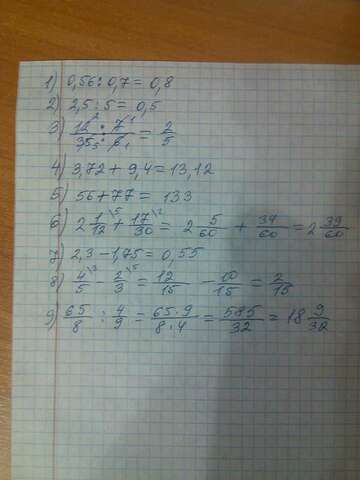 1) 0,56 : 0,7 = 0,8
2) 2,5 : 5 = 0,5
3) 12² · 7¹ / 35₅ · 6₁ = 2/5
4) 3,72 + 9,4 = 13,12
5) 56 + 77 = 133
6) 2 1/12 \5 + 17/30 \2 = 2 5/60 + 34/60 = 2 39/60
7) 2,3 - 1,75 = 0,55
8) 4/5 \3 - 2/3 \5 = 12/15 - 10/15 = 2/15
9) 65/8 : 4/9 = 65·9/8·4 = 585/32 = 18 9/32